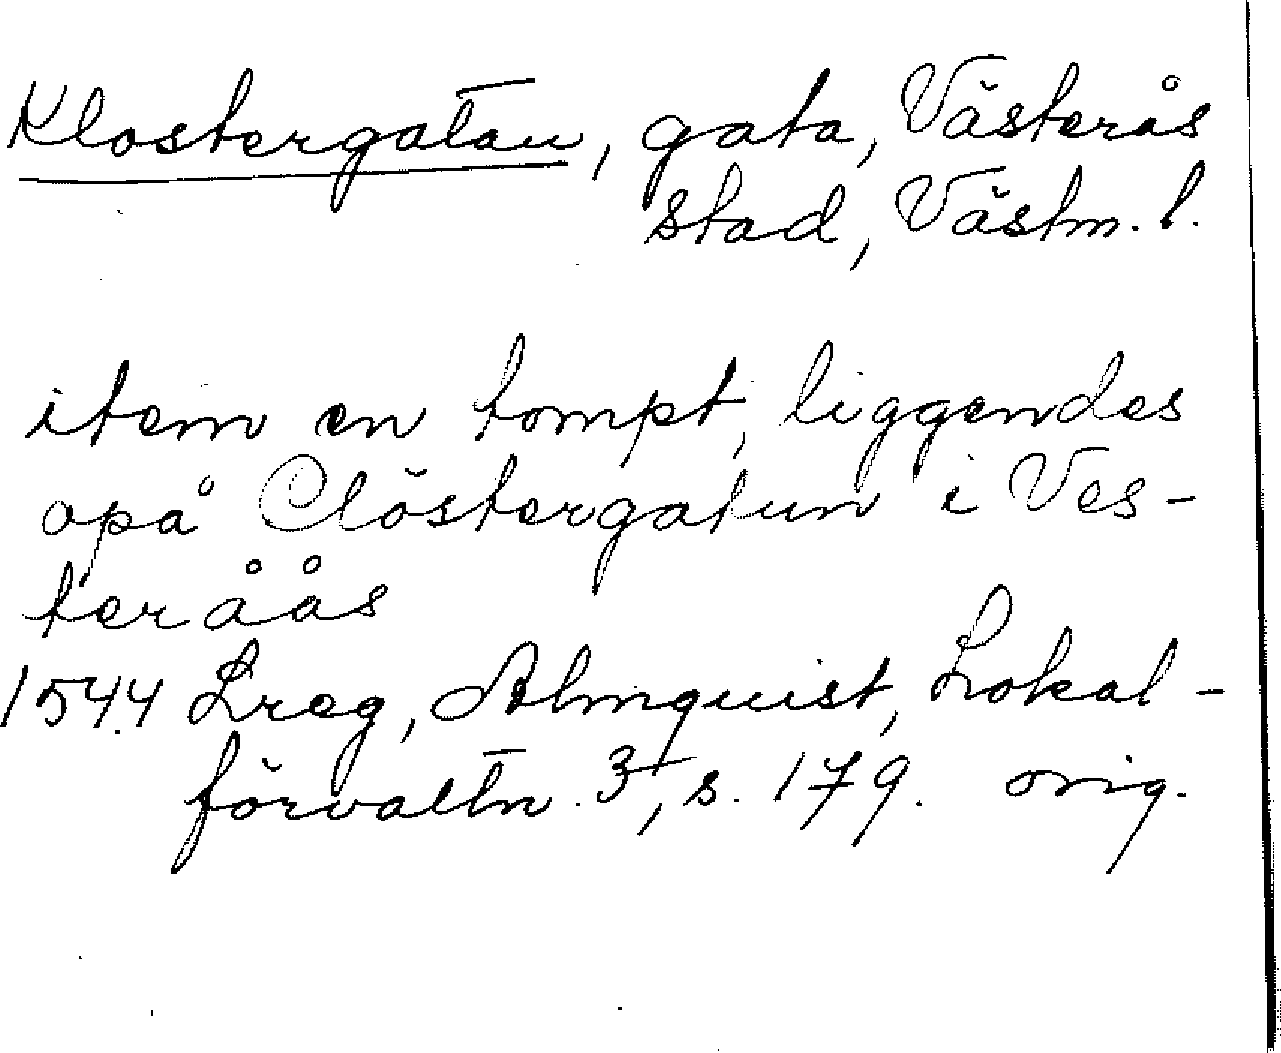 Klostergatan, gata, Västerås
stad, Västm. l.
item en tompt, liggendes
opå Clöstergatun i Ves-
teråås
1544 Lreg, Almquist, Lokal-
förvaltn. 3, s. 179. orig.